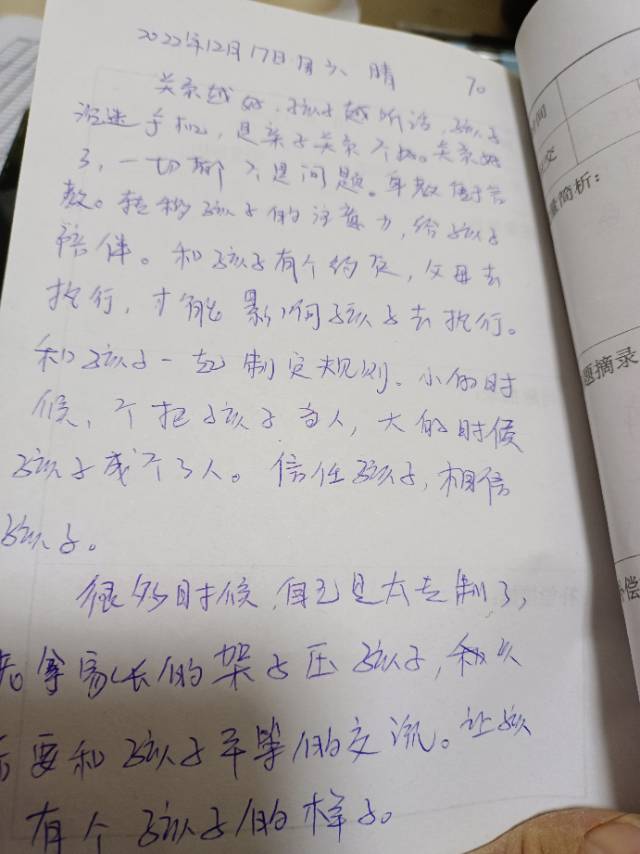 2022年12月17日 周六 晴 70
关系越好,孩子越听话,孩子
沉迷手机,是亲子关系不好。关系好
了,一切都不是问题。身教重于言
教。转移孩子的注意力,给孩子
陪伴。和孩子有个约定,父母去
执行,才能影响孩子去执行。
和孩子一起制定规则。小的时
候,不把孩子当人,大的时候
孩子成不了人。信任孩子,相信
孩子。
很多时候,自己是太专制了,
老拿家长的架子压孩子,
要和孩子平等的交流。让孩
有个孩子的样子。
间
交
简析:
题摘录
偿